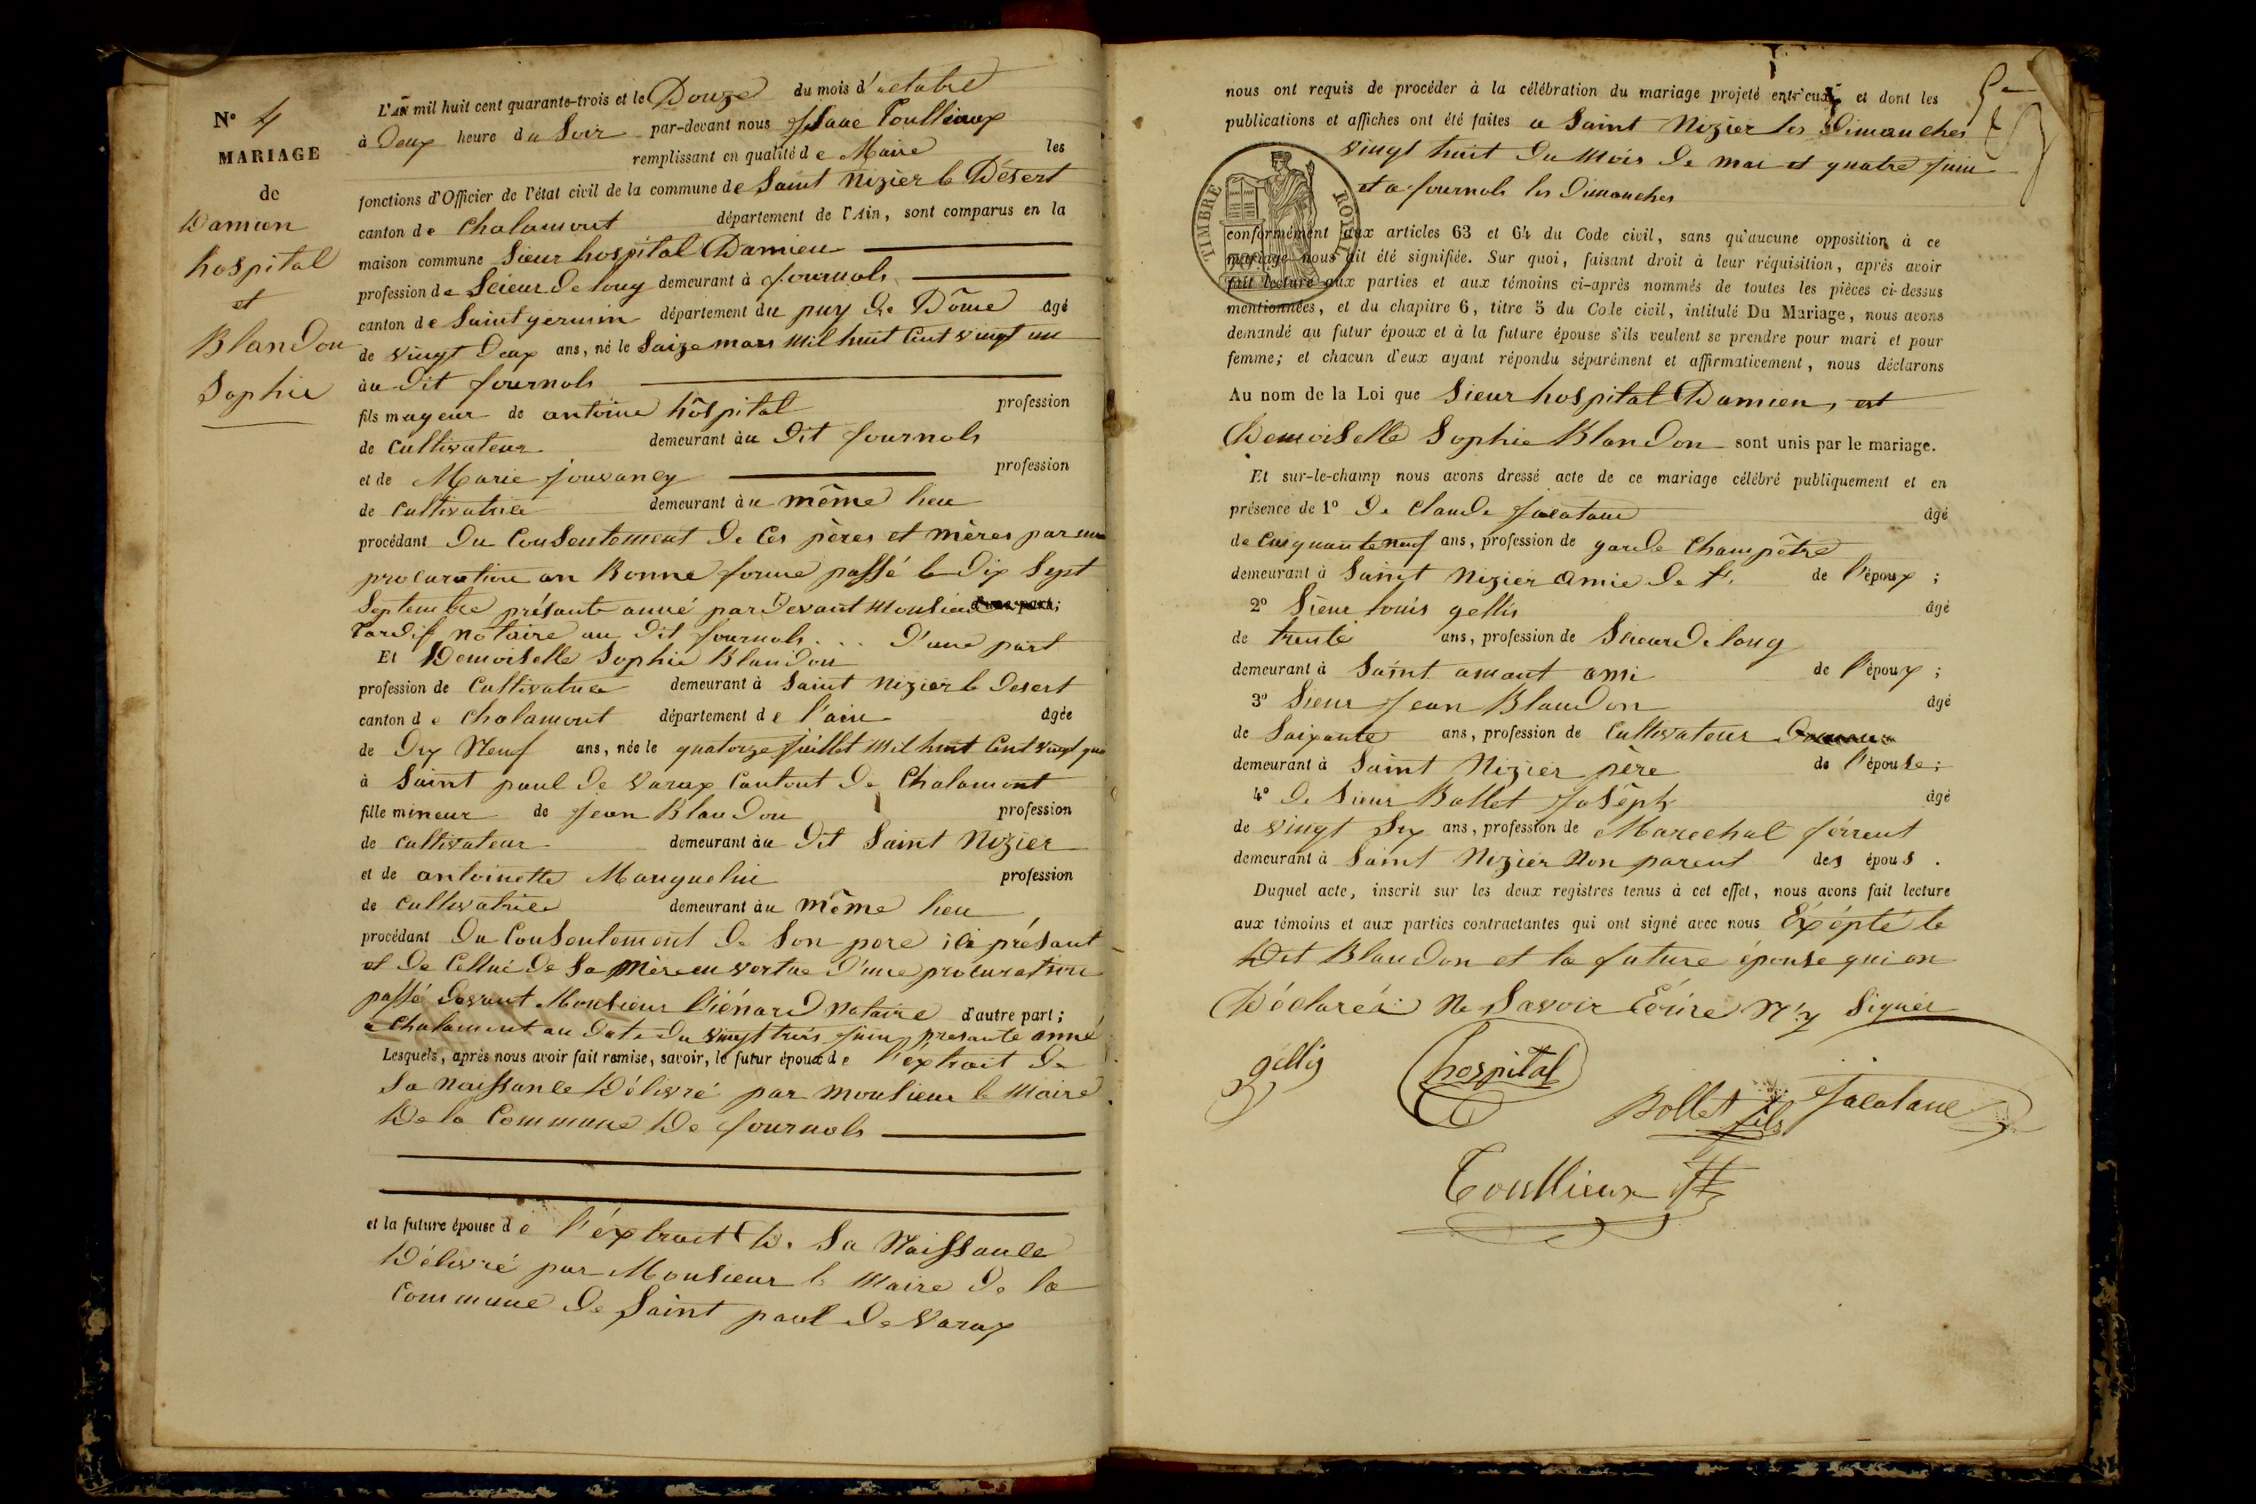 N° 4
MARIAGE
de
Damien
hospital
et
Blandon
Sophie
L'AN mil huit cent quarante-trois et le Douze du mois d'octobre
à Deux heure du Soir par-devant nous Isaac Toullieux
remplissant en qualité de Maire les
fonctions d'Officier de l'état civil de la commune de Saint Nizier le Désert
canton de Chalamont département de l'Ain, sont comparus en la
maison commune Sieur hospital Damien
profession de Scieur de long demeurant à fournols
canton de Saint germin département du puy de Dôme âgé
de vingt Deux ans, né le Saize mars mil huit Cent vingt un
àu dit fournols
fils mageur de antoine hôspital profession
de Cultivateur demeurant àu Dit fournols
et de Marie jouvancy profession
de Cultivatrice demeurant àu même lieu
procédant Du Consentement De Ces pères et mères par une
procuration an Bonne forme passé le Dix Sept
Septembre présante anné par Devant Monsieur d'une part;
Tardif notaire au dit fournols . . . D'une part
Et Demoiselle Sophie Blandon
profession de Cultivatrice demeurant à Saint Nizier le Desert
canton de Chalamont département de l'ain âgée
de Dix Neuf ans, née le quatorze Juillet mil huit Cent vingt qua
à Saint paul de varax Cantont De Chalamont
fille mineur de Jean Blandon profession
de Cultivateur demeurant àu Dit Saint Nizier
et de antoinette Manguelin profession
de Cultivatrice demeurant àu même lieu
procédant Du Consentement De Son pere ici présant
et De Cellui De Sa Mère en vertue D'une procuration
passé Devant Monsieur Viénard Notaire d'autre part;
a Chalamont au Date Du vingt trois Juin presante anné
Lesquels, après nous avoir fait remise, savoir, le futur époux de l'éxtrait De
Sa Naissance Délivré par Monsieur le Maire
De la Commune De fournols
et la future épouse de l'éxtrait De Sa Naissance
Délivré par Monsieur le Maire De la
Commune De Saint paul De Varax
nous ont requis de procéder à la célébration du mariage projeté entr'eux, et dont les
publications et affiches ont été faites a Saint Nizier les Dimanches
vingt huit Du Mois De mai et quatre Juin
et a fournols les Dimanches
TIMBRE ROYAL
conformément aux articles 63 et 64 du Code civil, sans qu'aucune opposition à ce
mariage nous ait été signifiée. Sur quoi, faisant droit à leur réquisition, après avoir
fait lecture aux parties et aux témoins ci-après nommés de toutes les pièces ci-dessus
mentionnées, et du chapitre 6, titre 5 du Code civil, intitulé Du Mariage, nous avons
demandé au futur époux et à la future épouse s'ils veulent se prendre pour mari et pour
femme; et chacun d'eux ayant répondu séparément et affirmativement, nous déclarons
Au nom de la Loi que Sieur hospital Damien, et
Demoiselle Sophie Blandon sont unis par le mariage.
Et sur-le-champ nous avons dressé acte de ce mariage célébré publiquement et en
présence de 1° De Claude Jacatane âgé
de Cinquante neuf ans, profession de garde Champêtre
demeurant à Saint Nizier amie De de l'époux ;
2° Sieur louis gellis âgé
de trente ans, profession de Scieur De long
demeurant à Saint amant ami de l'époux ;
3° Sieur Jean Blandon âgé
de Soixante ans, profession de Cultivateur
demeurant à Saint Nizier père de l'épouse ;
4° De Sieur Bollet Joséph âgé
de vingt Six ans, profession de Marechal férrent
demeurant à Saint Nizier Non parent des épous .
Duquel acte, inscrit sur les deux registres tenus à cet effet, nous avons fait lecture
aux témoins et aux parties contractantes qui ont signé avec nous Éxépté le
Dit Blandon et la future épouse qui on
Déclarés Ne Savoir Écrire N'y Signér
gellis hospital
Bollet fils Jacatane
Toullieux